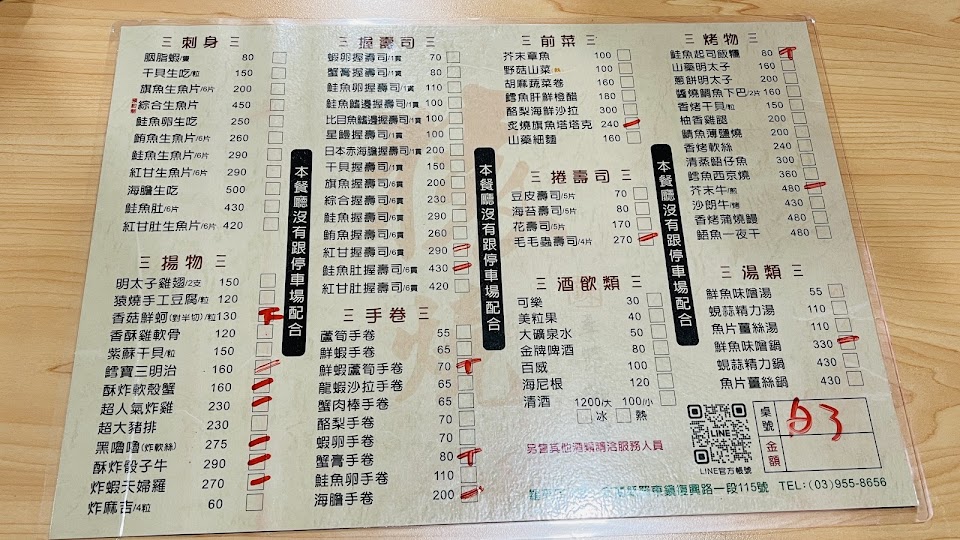 三 刺身 三
胭脂蝦/隻 80
干貝生吃/粒 150
旗魚生魚片/6片 200
綜合生魚片 450
鮭魚卵生吃 250
鮪魚生魚片/6片 260
鮭魚生魚片/6片 290
紅甘生魚片/6片 290
海膽生吃 500
鮭魚肚/6片 430
紅甘肚生魚片/6片 420
三 揚物 三
明太子雞翅/2支 150
猿燒手工豆腐/粒 120
香菇鮮蚵(對半切)/粒 130
香酥雞軟骨 120
紫酥干貝/粒 150
鱈寶三明治 160
酥炸軟殼蟹 160
超人氣炸雞 230
超大豬排 230
黑嚕嚕(炸軟絲) 275
酥炸骰子牛 290
炸蝦天婦羅 270
炸麻吉/4粒 60
三 握壽司 三
蝦卵握壽司/1貫 70
蟹膏握壽司/1貫 80
鮭魚卵握壽司/1貫 110
鮭魚鰭邊握壽司/1貫 100
比目魚鰭邊握壽司/1貫 100
星鰻握壽司/1貫 100
日本赤海膽握壽司/1貫 200
干貝握壽司/1貫 150
旗魚握壽司/6貫 200
綜合握壽司/6貫 230
鮭魚握壽司/6貫 290
鮪魚握壽司/6貫 260
紅甘握壽司/6貫 290
鮭魚肚握壽司/6貫 430
紅甘肚握壽司/6貫 420
三 手卷 三
蘆筍手卷 55
鮮蝦手卷 65
鮮蝦蘆筍手卷 70
龍蝦沙拉手卷 65
蟹肉棒手卷 65
酪梨手卷 70
蝦卵手卷 70
蟹膏手卷 80
鮭魚卵手卷 110
海膽手卷 200
本餐廳沒有跟停車場配合
三 前菜 三
芥末章魚 100
野菇山菜 100
胡麻蔬菜卷 160
鱈魚肝鮮橙醋 180
酪梨海鮮沙拉 300
炙燒旗魚塔塔克 240
山藥細麵 160
三 捲壽司 三
豆皮壽司/5片 70
海苔壽司/5片 80
花壽司/5片 170
毛毛蟲壽司/4片 270
三 酒飲類 三
可樂 30
美粒果 40
大礦泉水 50
金牌啤酒 80
百威 100
海尼根 120
清酒 1200/大 100/小
冰 熱
另會其他酒類請洽服務人員
本餐廳沒有跟停車場配合
三 烤物 三
鮭魚起司飯糰 80
山藥明太子 160
蔥餅明太子 200
醬燒鯛魚下巴/2片 160
香烤干貝/粒 150
柚香雞腿 200
鯖魚薄鹽燒 200
香烤軟絲 240
清蒸鯃仔魚 300
鱈魚西京燒 360
芥末牛/煎 480
沙朗牛/烤 480
香烤蒲燒鰻 480
鯃魚一夜干 480
三 湯類 三
鮮魚味噌湯 55
蜆蒜精力湯 110
魚片薑絲湯 110
鮮魚味噌鍋 330
蜆蒜精力鍋 430
魚片薑絲鍋 430
本餐廳沒有跟停車場配合
LINE
LINE官方帳號
桌號 A3
金額
東鎮復興路一段115號 TEL:(03)955-8656